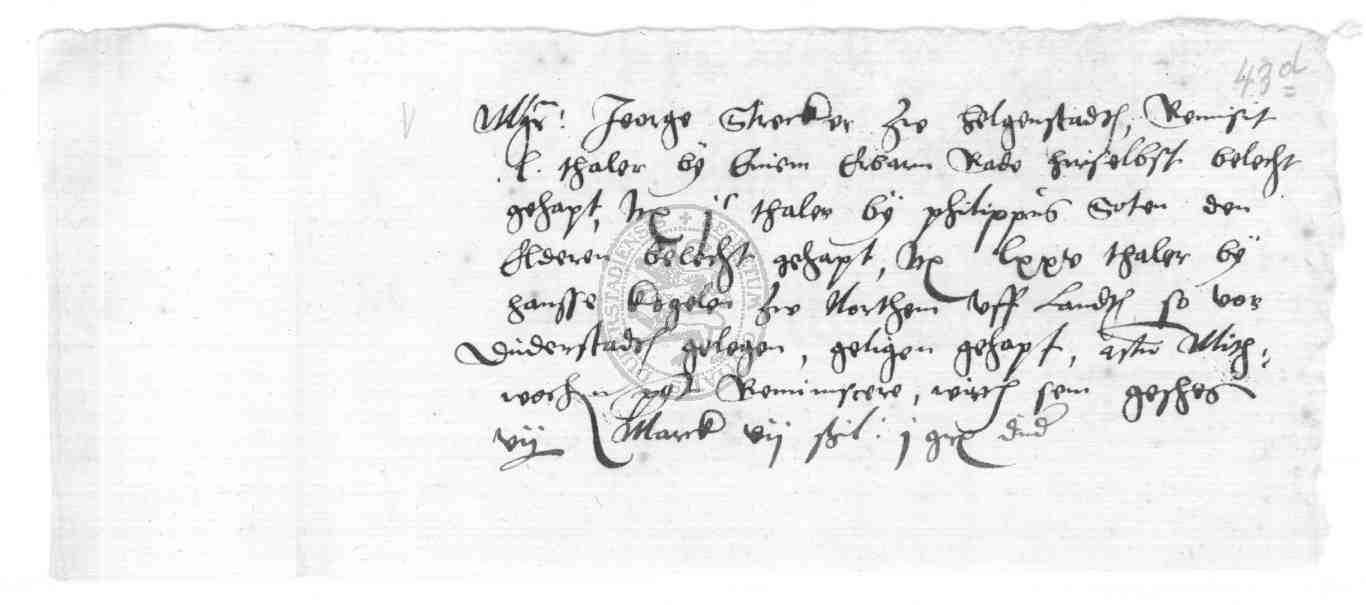 43d
Mgr: Jeorge Strecker zw helgenstadt, Remisit
.L. thaler by Einem Erbarn Rade hirselbst belecht
gehapt, Itz jc thaler by philippus Soten den
Elderen belecht gehapt, Itz lxxv thaler by
hansse kogelen zw Northem vff Landt so vor
Duderstadt gelegen, geligen gehapt, actu Mith-
wochen post Reminiscere, wirt sein geschos
vij Marck vij ßol: j gr dud